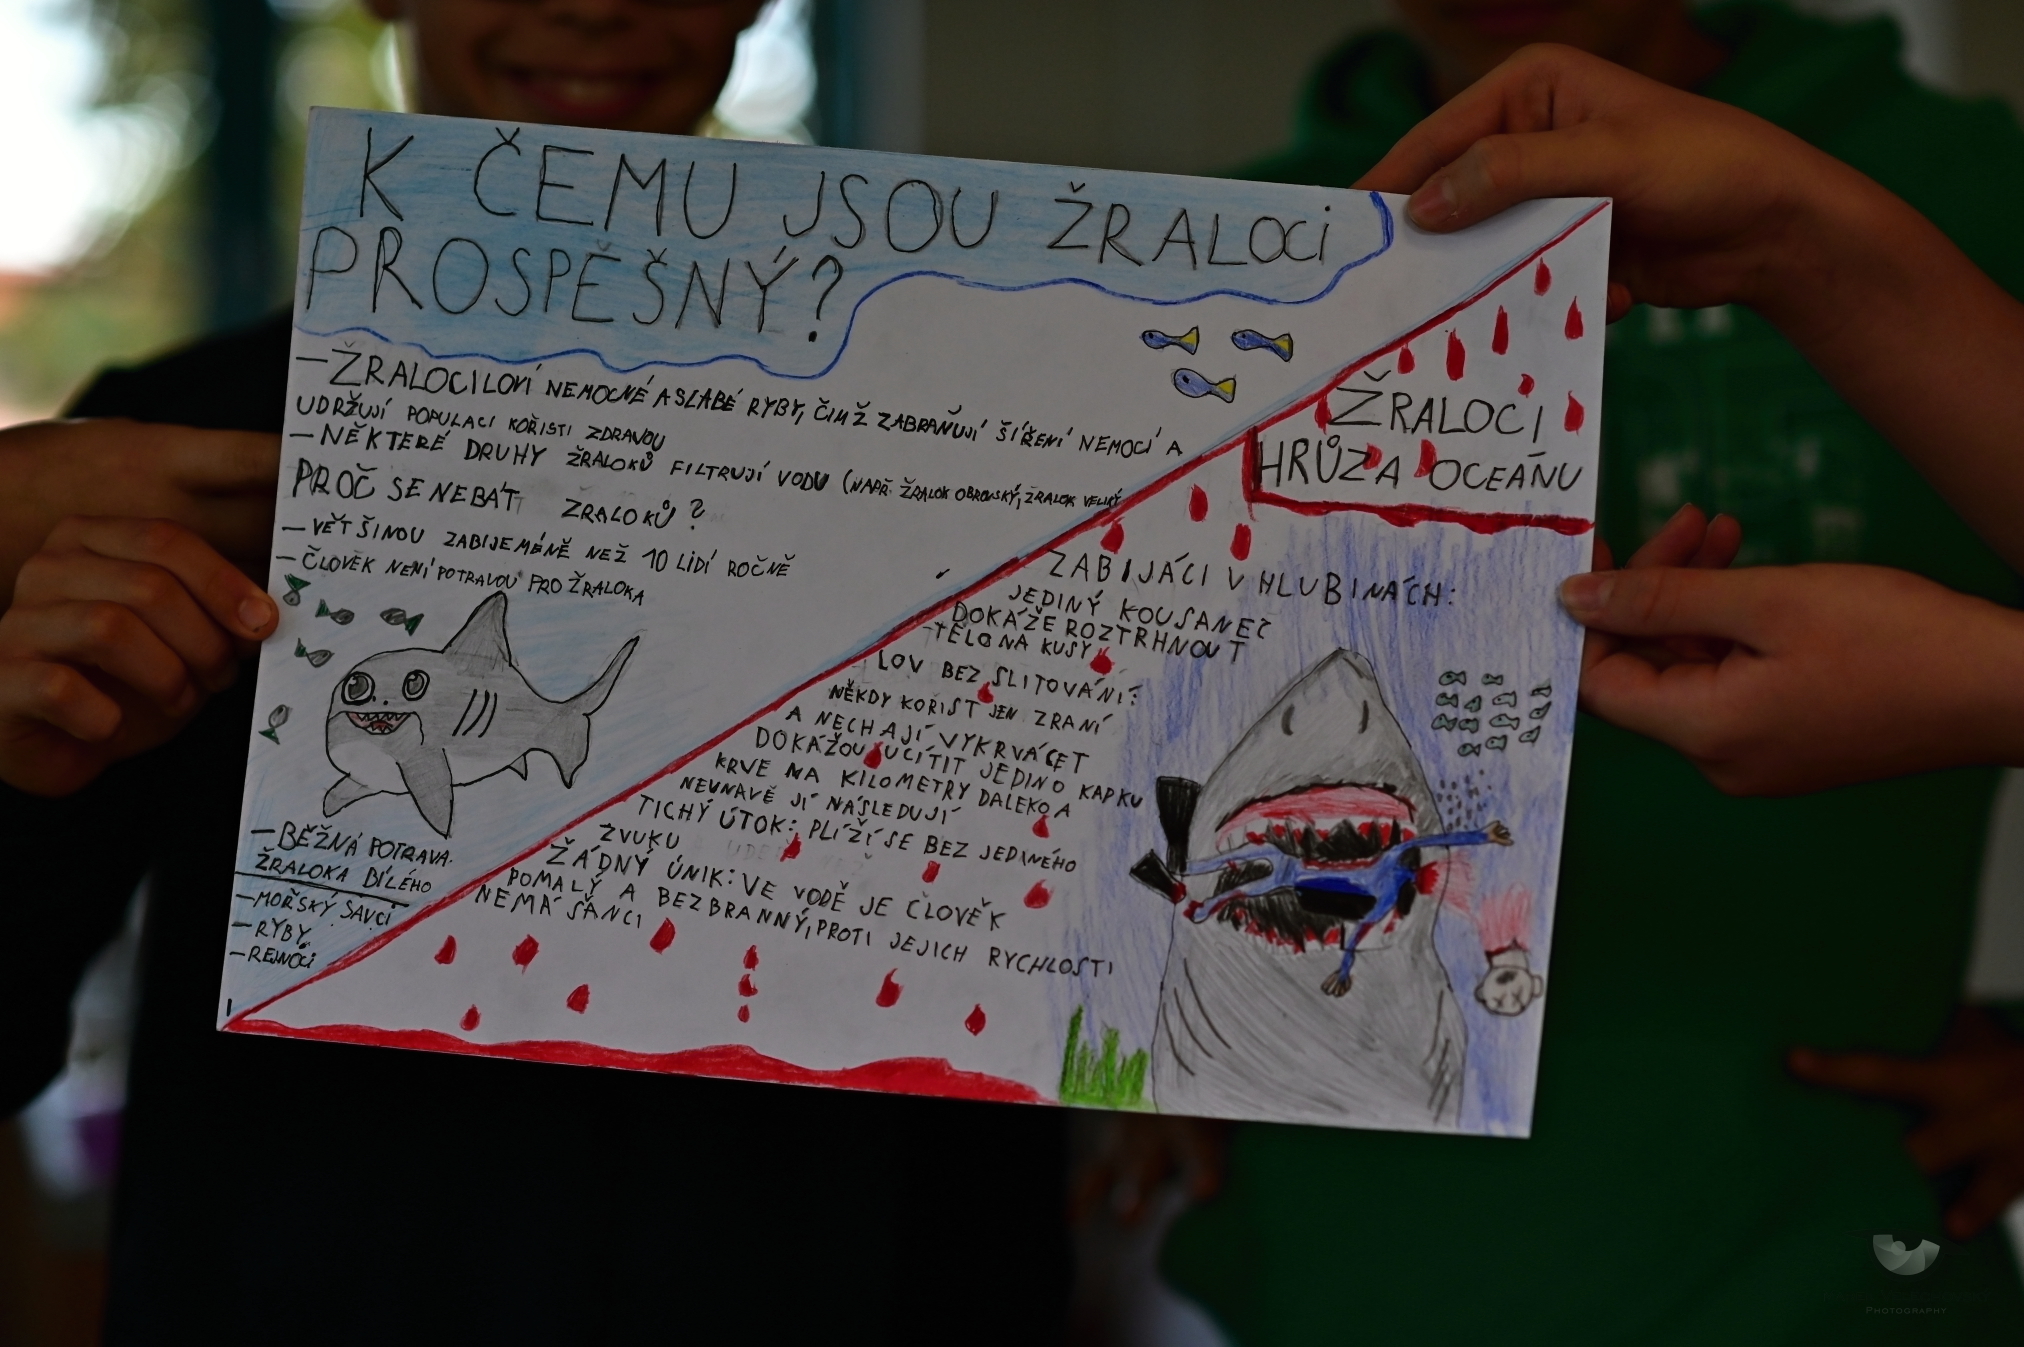 K ČEMU JSOU ŽRALOCI
PROSPĚŠNÝ?
– ŽRALOCI LOVÍ NEMOCNÉ A SLABÉ RYBY, ČIMŽ ZABRAŇUJÍ ŠÍŘENÍ NEMOCÍ A
UDRŽUJÍ POPULACI KOŘISTI ZDRAVOU
– NĚKTERÉ DRUHY ŽRALOKŮ FILTRUJÍ VODU (NAPŘ. ŽRALOK OBROVSKÝ, ŽRALOK VELIKÝ
PROČ SE NEBÁT ŽRALOKŮ?
– VĚTŠINOU ZABIJE MÉNĚ NEŽ 10 LIDÍ ROČNĚ
– ČLOVĚK NENÍ POTRAVOU PRO ŽRALOKA
– BĚŽNÁ POTRAVA
ŽRALOKA BÍLÉHO
– MOŘSKÝ SAVCI
– RYBY
– REJNOCI
ŽRALOCI
HRŮZA OCEÁNU
ZABIJÁCI V HLUBINÁCH:
JEDINÝ KOUSANEC
DOKÁŽE ROZTRHNOUT
TĚLO NA KUSY
LOV BEZ SLITOVÁNÍ:
NĚKDY KOŘIST JEN ZRANÍ
A NECHAJÍ VYKRVÁCET
DOKÁŽOU UCÍTIT JEDINO KAPKU
KRVE NA KILOMETRY DALEKO A
NEUNAVĚ JÍ NÁSLEDUJÍ
TICHÝ ÚTOK: PLÍŽÍ SE BEZ JEDINÉHO
ZVUKU
ŽÁDNÝ ÚNIK: VE VODĚ JE ČLOVĚK
POMALÝ A BEZBRANNÝ, PROTI JEJICH RYCHLOSTI
NEMÁ ŠANCI
PHOTOGRAPHY